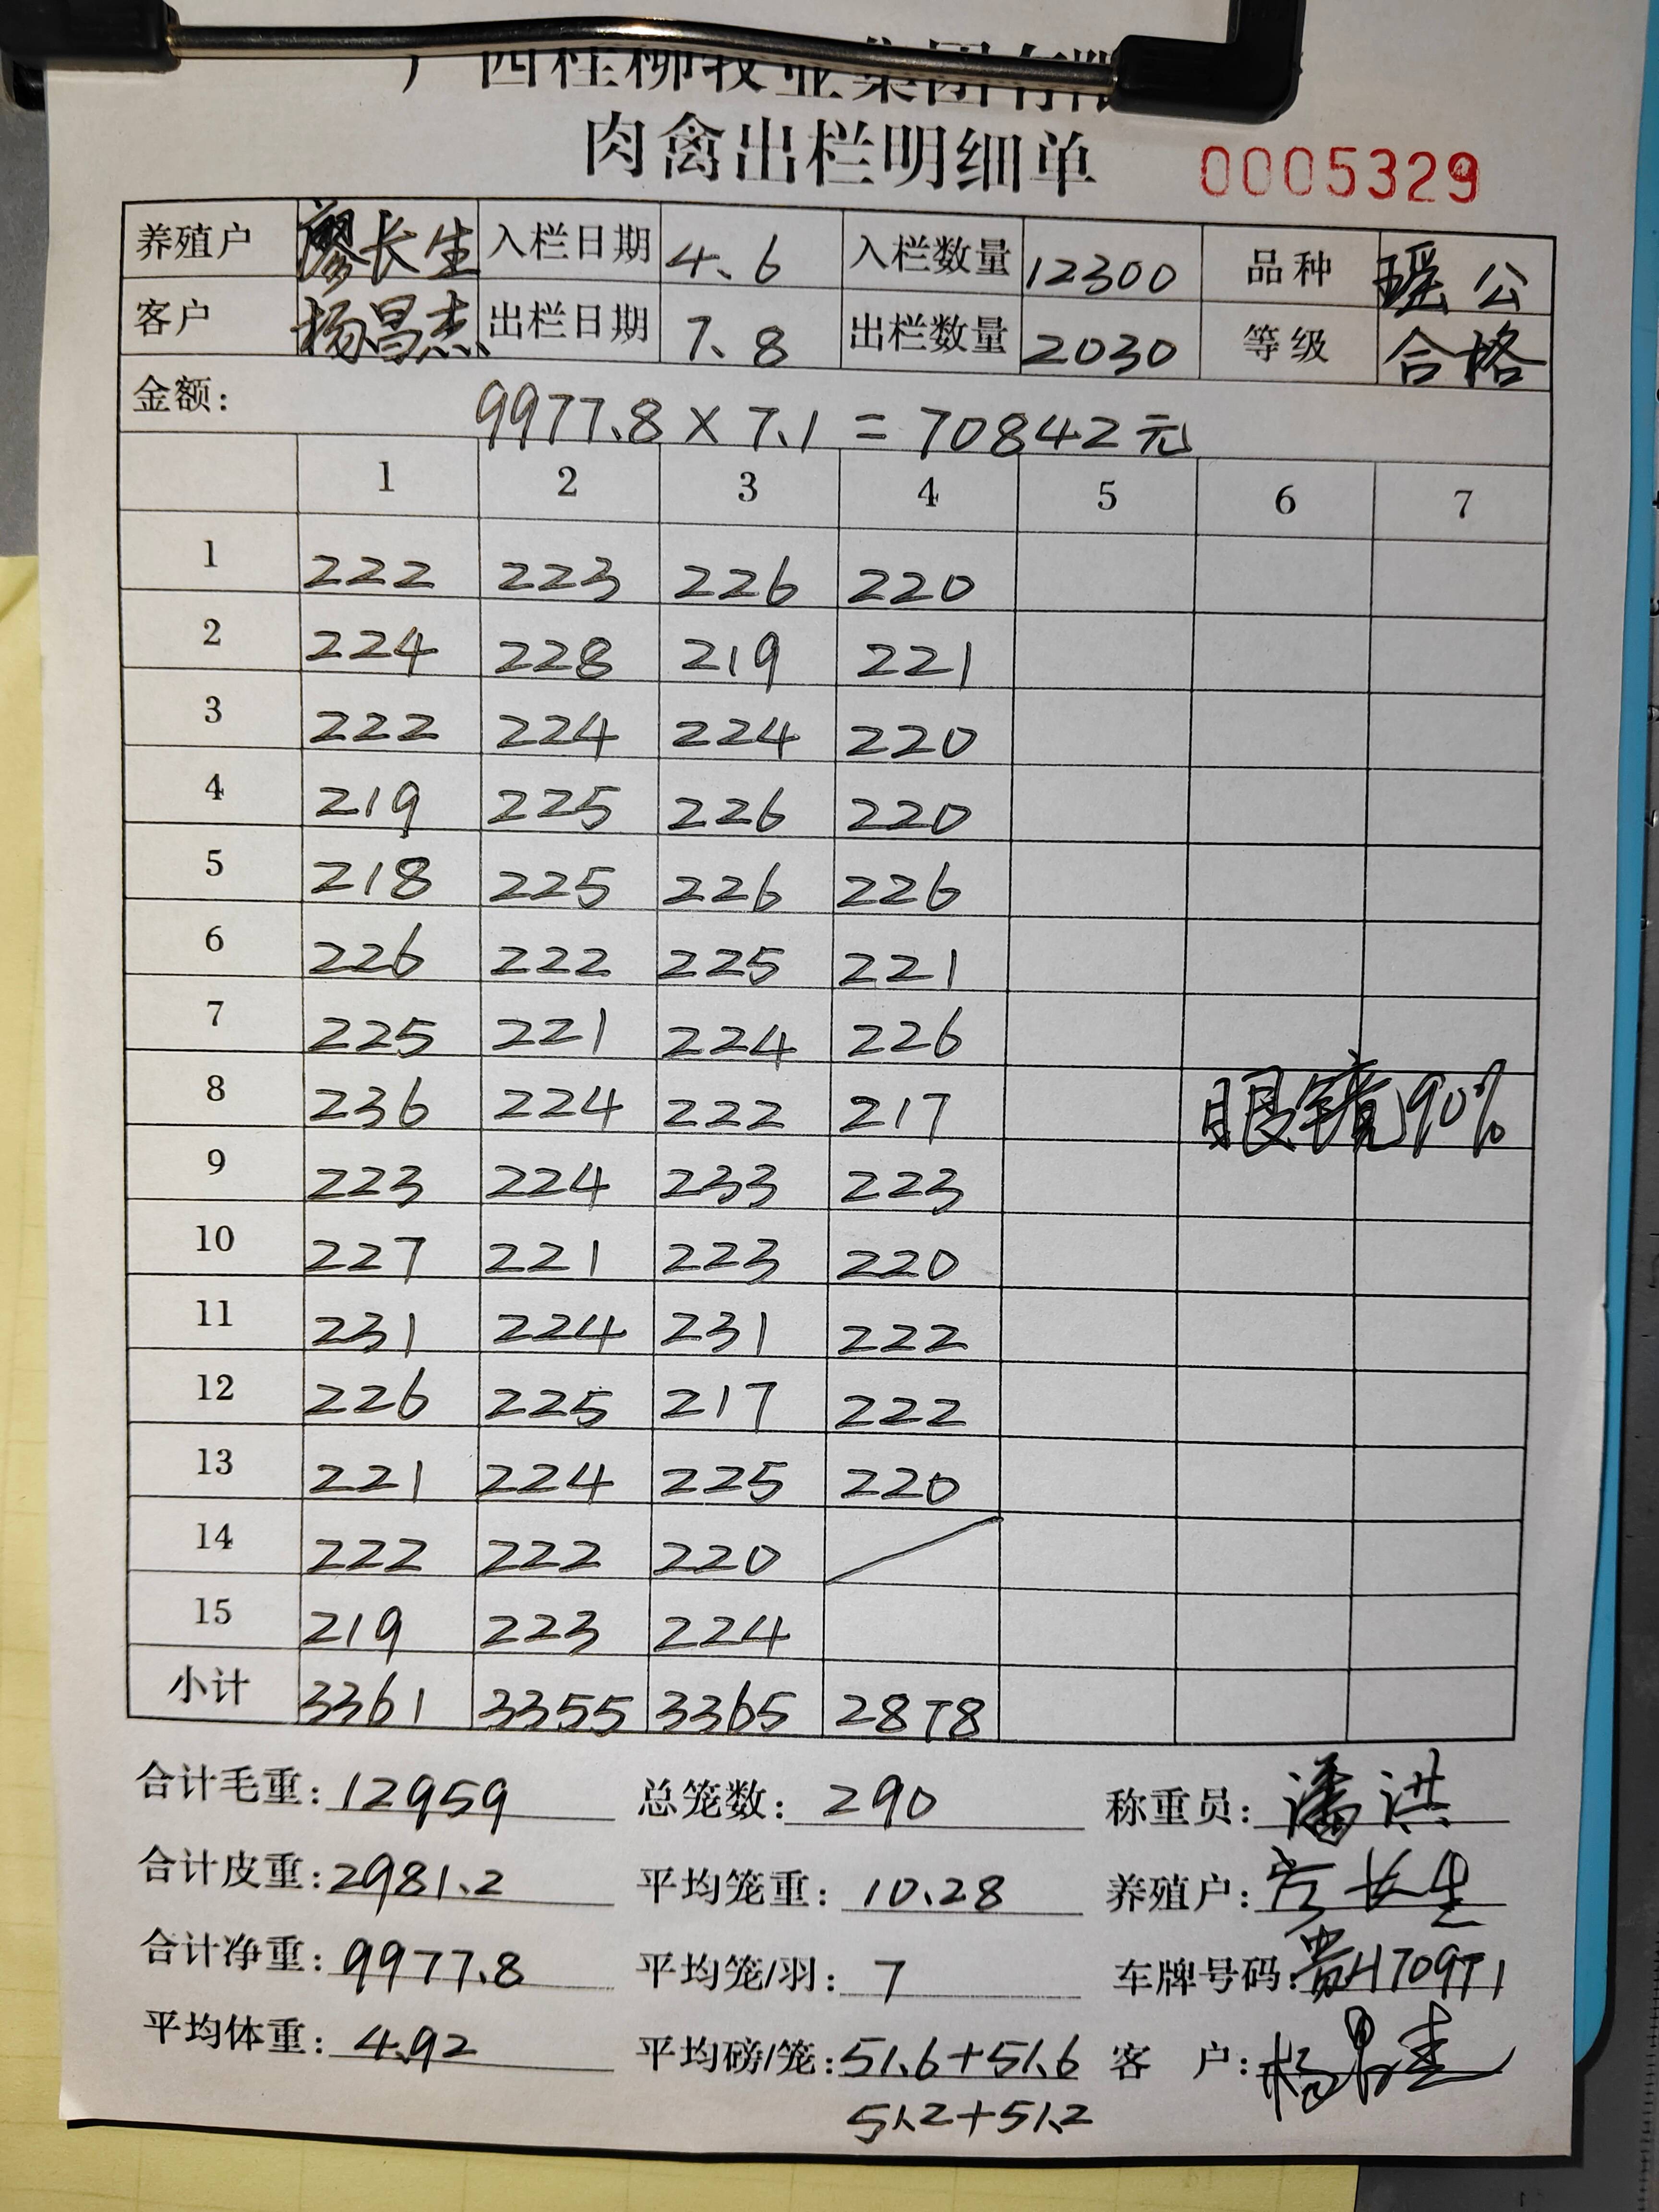 广西桂柳牧业集团有限
肉禽出栏明细单 0005329
养殖户 廖长生 入栏日期 4.6 入栏数量 12300 品种 瑶公
客户 杨昌杰 出栏日期 7.8 出栏数量 2030 等级 合格
金额: 9977.8×7.1=70842元
1 2 3 4 5 6 7
1 222 223 226 220
2 224 228 219 221
3 222 224 224 220
4 219 225 226 220
5 218 225 226 226
6 226 222 225 221
7 225 221 224 226
8 236 224 222 217 眼镜90%
9 223 224 233 223
10 227 221 223 220
11 231 224 231 222
12 226 225 217 222
13 221 224 225 220
14 222 222 220
15 219 223 224
小计 3361 3355 3365 2878
合计毛重:12959 总笼数:290 称重员:潘洪
合计皮重:2981.2 平均笼重:10.28 养殖户:廖长生
合计净重:9977.8 平均笼/羽:7 车牌号码:贵H709T1
平均体重:4.92 平均磅/笼:51.6+51.6 客户:杨昌杰
51.2+51.2